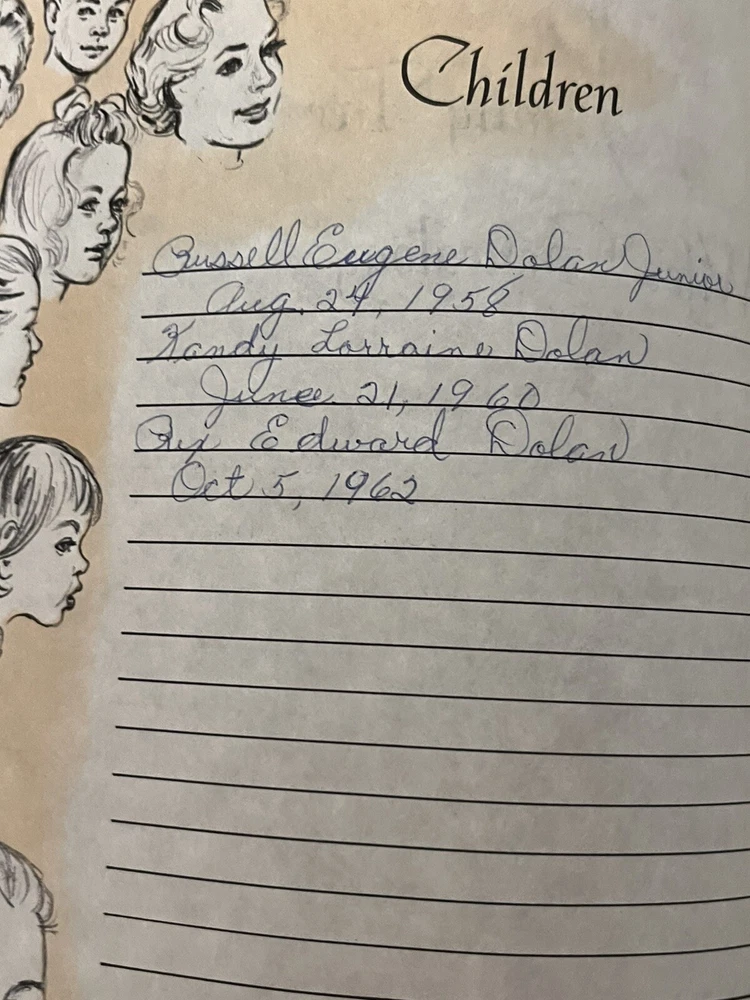 Children
Russell Eugene Dolan Junior
Aug. 24, 1958
Kandy Lorraine Dolan
June 21, 1960
Edward Dolan
Oct 5, 1962